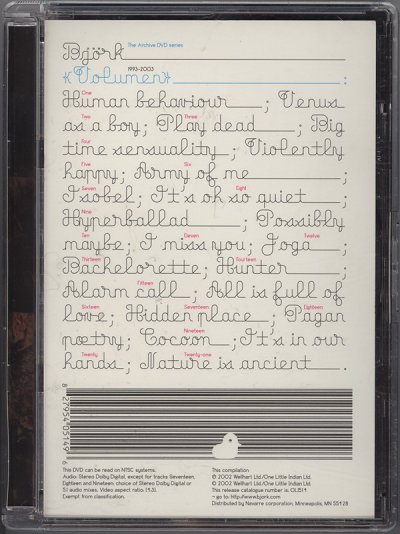 Björk The Archive DVD series
1993-2003
{Volumen} ;
One
Human behaviour ; Venus
Two Three
as a boy; Play dead ; Big
Four
time sensuality ; Violently
Five Six
happy; Army of me ;
Seven Eight
Isobel; It's oh so quiet ;
Nine
Hyperballad ; Possibly
Ten Eleven Twelve
maybe; I miss you; Joga ;
Thirteen Fourteen
Bachelorette; Hunter ;
Fifteen
Alarm call ; All is full of
Sixteen Seventeen Eighteen
love; Hidden place ; Pagan
Nineteen
poetry; Cocoon ; It's in our
Twenty Twenty-one
hands; Nature is ancient .
8 27954 05149 6
This DVD can be read on NTSC systems.
Audio: Stereo Dolby Digital, except for tracks Seventeen,
Eighteen and Nineteen; choice of Stereo Dolby Digital or
5.1 audio mixes. Video aspect ratio: (4:3).
Exempt from classification.
This compilation
© 2002 Wellhart Ltd/One Little Indian Ltd.
© 2002 Wellhart Ltd/One Little Indian Ltd.
This release catalogue number is:
~ go to: http://www.bjork.com
Distributed by Navarre corporation, Minneapolis, MN 55428